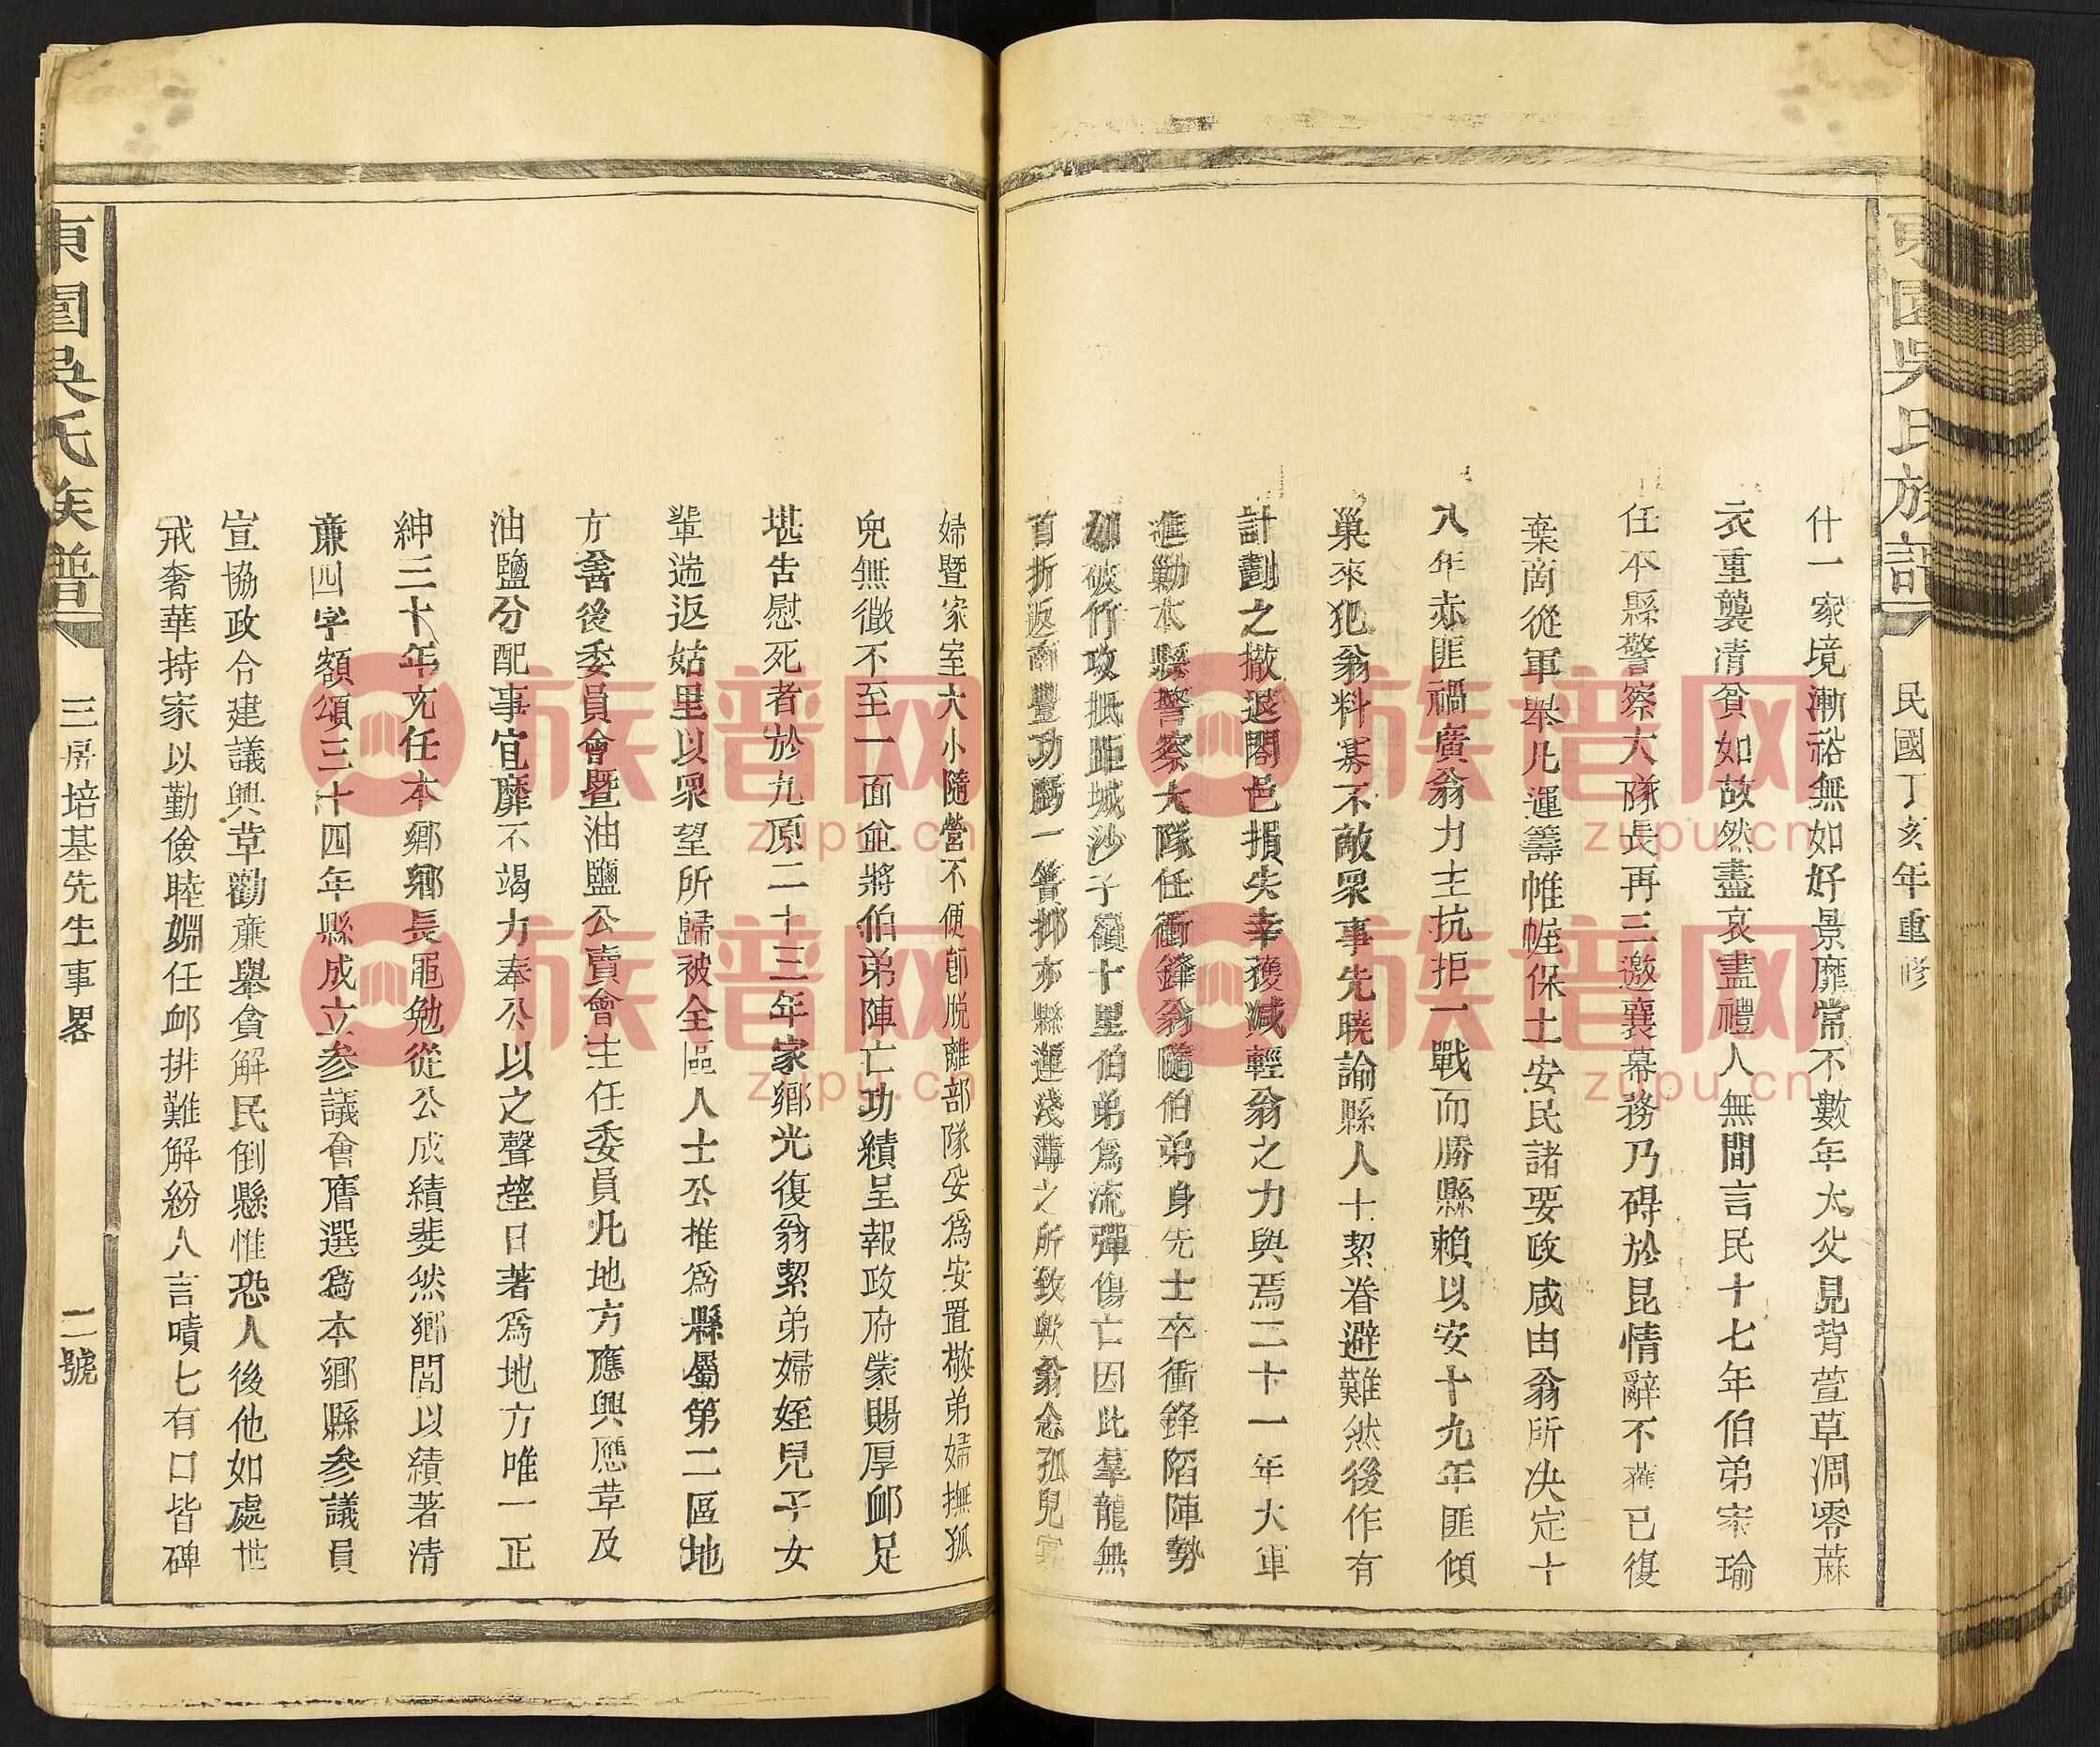 東園吳氏族譜
民國丁亥年重修
什一家境漸裕無如好景靡常不數年太父見背萱草凋零蔴
衣重襲清貧如故然盡哀盡禮人無間言民十七年伯弟家瑜
任本縣警察大隊長再三邀襄幕務乃碍於昆情辭不獲已復
棄商從軍舉凡運籌帷幄保土安民諸要政咸由翁所决定十
八年赤匪禍廣翁力主抗拒一戰而勝縣賴以安十九年匪傾
巢來犯翁料寡不敵衆事先曉諭縣人十絜眷避難然後作有
計劃之撤退閤邑損失幸獲減輕翁之力與焉二十一年大軍
進勦本縣警察大隊任衝鋒翁隨伯弟身先士卒衝鋒陷陣勢
如破竹攻抵距城沙子嶺十里伯弟爲流彈傷亡因此羣龍無
首折返而豐功虧一簣抑亦縣運淺薄之所致歟翁念孤兒寡
婦暨家室大小隨營不便卽脫離部隊妥爲安置撫弟婦撫狐
兒無微不至一面並將伯弟陣亡功績呈報政府蒙賜厚卹足
堪告慰死者於九原二十三年家鄉光復翁絜弟婦姪兒子女
輩遄返姑里以衆望所歸被全區人士公推爲縣屬第二區地
方善後委員會暨油鹽公賣會主任委員凡地方應興應革及
油鹽分配事宜靡不竭力奉公以之聲望日著爲地方唯一正
紳三十年充任本鄉鄉長黽勉從公成績斐然鄉閭以績著清
廉四字額頌三十四年縣成立參議會膺選爲本鄉縣參議員
宣協政令建議興革勸廉舉貪解民倒懸惟恐人後他如處世
戒奢華持家以勤儉睦婣任卹排難解紛人言嘖七有口皆碑
東園吳氏族譜
三房培基先生事畧
二號
族譜网
zupu.cn
族譜网
zupu.cn
族譜网
zupu.cn
族譜网
zupu.cn